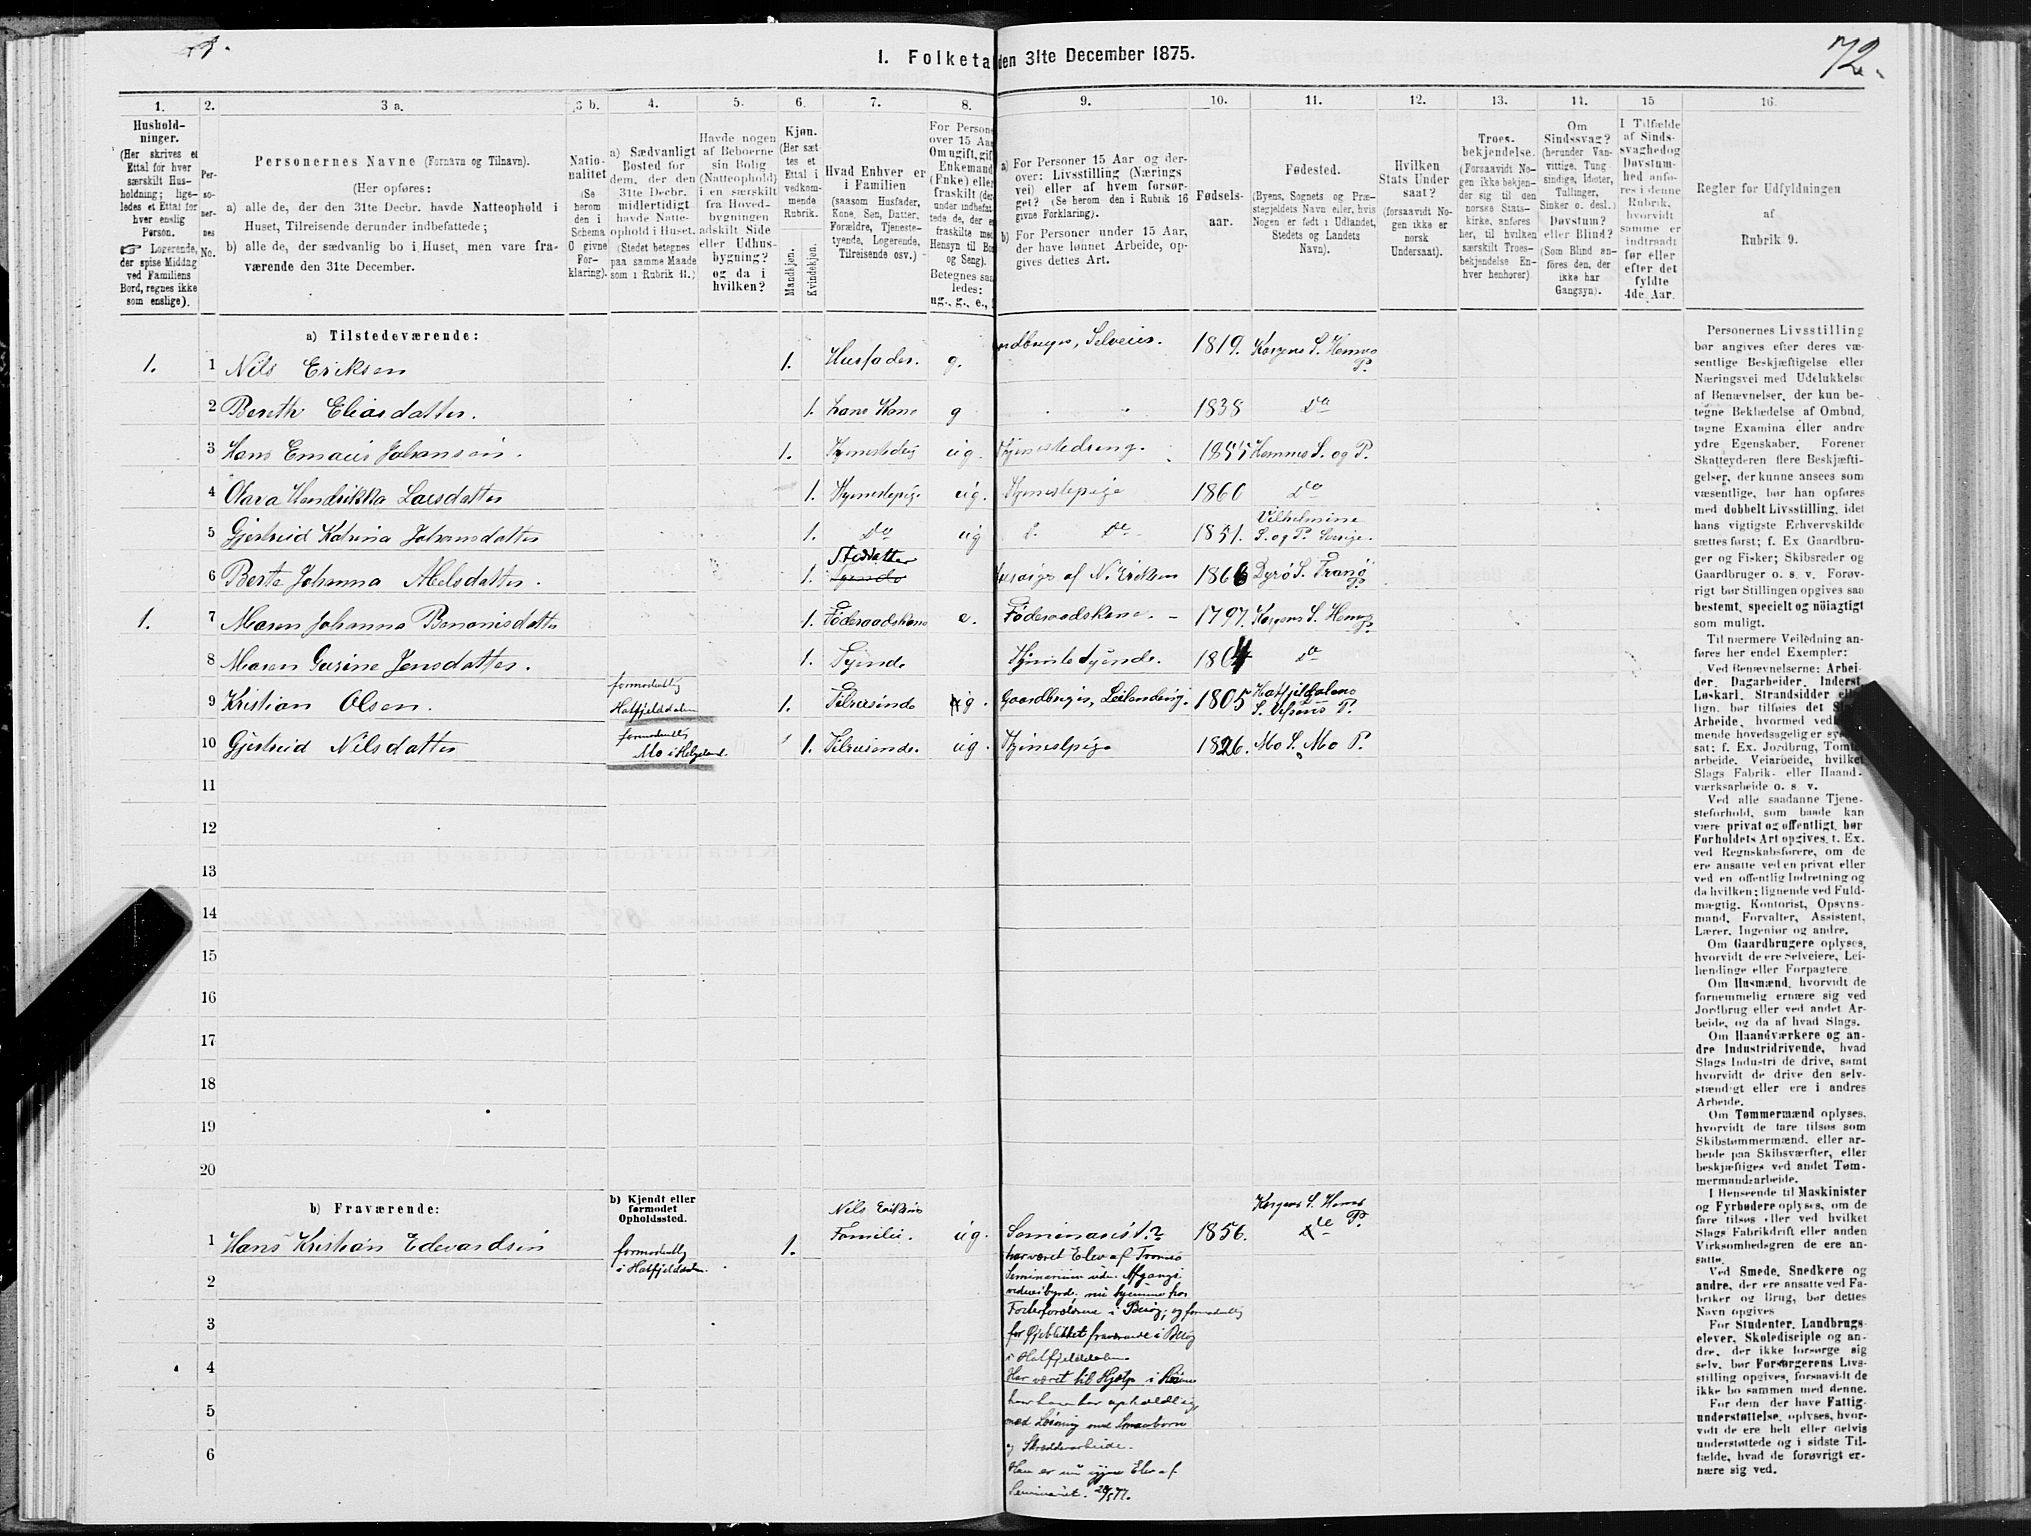 72.
1. Folketa den 31te December 1875.
1. 2. 3 a. 3 b. 4. 5. 6. 7. 8. 9. 10. 11. 12. 13. 14. 15 16.
Hushold-
ninger.
(Her skrives et
Ettal for hver
særskilt Hus-
holdning; lige-
ledes et Ettal for
hver enslig
Person.
☞ Logerende,
der spise Middag
ved Familiens
Bord, regnes ikke
som enslige).
Per-
so-
ner-
nes
No.
Personernes Navne (Fornavn og Tilnavn).
(Her opføres:
a) alle de, der den 31te Decbr. havde Natteophold i
Huset, Tilreisende derunder indbefattede;
b) alle de, der sædvanlig bo i Huset, men vare fra-
værende den 31te December.
Natio-
nalitet
(Se
herom
den i
Schema
O givne
For-
klaring).
a) Sædvanligt
Bosted for
dem, der den
31te Decbr.
midlertidigt
havde Natte-
ophold i Huset.
(Stedet betegnes
paa samme Maade
som i Rubrik 11.)
Havde nogen
af Beboerne
sin Bolig
(Natteophold)
i en særskilt
fra Hoved-
bygningen
adskilt Side
eller Udhus-
bygning?
og da i
hvilken?
Kjøn.
(Her sæt-
tes et
Ettal i
vedkom-
mende
Rubrik.
Mandkjøn.
Kvindekjøn.
Hvad Enhver er
i Familien
(saasom Husfader,
Kone, Søn, Datter,
Forældre, Tjeneste-
tyende, Logerende,
Tilreisende osv.)
For Persone
over 15 Aar
Om ugift, gift
Enkemand
(Enke) eller
fraskilt (der-
under indbefat-
tede de, der e
fraskilte med
Hensyn til Bo
og Seng).
Betegnes saa
ledes:
ug., g., e.,
a) For Personer 15 Aar og der-
over: Livsstilling (Nærings
vei) eller af hvem forsør-
get? (Se herom den i Rubrik 16
givne Forklaring).
b) For Personer under 15 Aar,
der have lønnet Arbeide, op-
gives dettes Art.
Fødsels-
aar.
Fødested.
(Byens, Sognets og Præ-
stegjeldets Navn eller, hvis
Nogen er født i Udlandet,
Stedets og Landets
Navn).
Hvilken
Stats Under
saat?
(forsaavidt No-
gen ikke er
norsk
Undersaat).
Troes-
bekjendelse.
(Forsaavidt No-
gen ikke bekjen-
der sig til den
norske Stats-
kirke, anføres
her, til hvilken
særskilt Troes-
bekjendelse En-
hver henhører)
Om
Sindssvag?
(herunder Van-
vittige, Tung
sindige, Idioter,
Tullinger,
Sinker o. desl.)
Døvstum?
eller Blind?
(Som Blind an-
føres den, der
ikke har
Gangsyn).
I Tilfælde
af Sinds-
svaghed og
Døvstum-
hed anfø-
res i denne
Rubrik,
hvorvidt
samme er
indtraadt
før eller
efter det
fyldte
4de Aar.
Regler for Udfyldningen
af
Rubrik 9.
a) Tilstedeværende:
1. 1 Nils Eriksen 1. Husfader. g. ndbruger, Selveier. 1819. Korgens S. Hemnes P.
2 Bereth Eliasdatter. 1. hans Kone g " " 1838 Do
3 Hans Emaus Johansen. 1. Tjenestedreng ug. Tjenestedreng. 1855 Hemnes S. og P.
4 Olava Hendrikka Larsdatter 1. Tjenestepige ug. Tjenestepige 1860 Do
5 Gjertrud Katrina Johansdatter 1. Do ug Do 1851. Vilhelmine S. og P. Sverige.
6 Berte Johanna Abelsdatter. 1. Steddatter Tjende Forsørges af N. Eriksen 1866 Dyrø S. Tranø P.
1. 7 Maren Johanna Benonisdatter 1. Føderaadskone e. Føderaadskone. 1797. Korgens S. Hemnes P.
8 Maren Gurine Jensdatter. 1. Tyende Tjenestetyende. 1864 Do
9 Kristian Olsen. formodentlig Hatfjelddalen 1. Tilreisende ug. Gaardbruger, Leilending. 1805 Hatfjelddalens S. Vefsens P.
10 Gjertrud Nilsdatter formodentlig Mo i Helgeland. 1. Tilreisende. ug. Tjenestepige 1826. Mo S. Mo P.
11
12
13
14
15
16
17
18
19
20
b) Fraværende:
b) Kjendt eller
formodet
Opholdssted.
1 Hans Kristian Edevardsen formodentlig i Hatfjelddalen. 1. Nils Eriksens Familie. ug. Seminarist? 1856. Korgens S. Hemnes P. Do
har været Elev af Tromsø
Seminarium uden Afgangs-
vidnesbyrd. nu hjemme hos
Fosterforældrene i Besøg; og formodentlig
for Øjeblikket fraværende i Besøg
i Hatfjelddalen.
Har været til Hjælp i
hvor han har opholdt sig
med Læsning med Smaabørn
og Skrædderarbeide.
Han er nu igjen Elev af
Seminariet.
2
3
4
5
6
Personernes Livsstilling
bør angives efter deres væ-
sentlige Beskjæftigelse eller
Næringsvei med Udelukkelse
af Benævnelser, der kun be-
tegne Beklædelse af Ombud,
tagne Examina eller andre
ydre Egenskaber. Forener
Skatteyderen flere Beskjæfti-
gelser, der kunne ansees som
væsentlige, bør han opføres
med dobbelt Livsstilling, idet
hans vigtigste Erhvervskilde
sættes først; f. Ex Gaardbru-
ger og Fisker; Skibsreder og
Gaardbruger o. s. v. Forøv-
rigt bør Stillingen opgives saa
bestemt, specielt og nöiagtigt
som muligt.
Til nærmere Veiledning an-
føres her endel Exempler:
Ved Benævnelserne: Arbei-
der, Dagarbeider, Inderst,
Løskarl, Strandsidder eller
lign. bør tilføies det Slags
Arbeide, hvormed vedkom-
mende hovedsagelig er syssel-
sat; f. Ex. Jordbrug, Tomte-
arbeide, Veiarbeide, hvilket
Slags Fabrik- eller Haand-
værksarbeide o. s. v.
Ved alle saadanne Tjene-
steforhold, som baade kan
være privat og offentligt, bør
Forholdets Art opgives, t. Ex.
ved Regnskabsførere, om de
ere ansatte ved en privat eller
ved en offentlig Indretning og
da hvilken; lignende ved Fuld-
mægtig, Kontorist, Opsyns-
mand, Forvalter, Assistent,
Lærer, Ingeniør og andre.
Om Gaardbrugere oplyses,
hvorvidt de ere Selveiere, Lei-
lændinge eller Forpagtere.
Om Husmænd, hvorvidt de
fornemmelig ernære sig ved
Jordbrug eller ved andet Ar-
beide, og da af hvad Slags.
Om Haandværkere og an-
dre Industridrivende, hvad
Slags Industri de drive, samt
hvorvidt de drive den selv-
stændigt eller ere i andres
Arbeide.
Om Tømmermænd oplyses,
hvorvidt de fare tilsøs som
Skibstømmermænd, eller ar-
beide paa Skibsværfter, eller
beskjæftiges ved andet Tøm-
mermandsarbeide.
I Henseende til Maskinister
og Fyrbødere oplyses, om de
fare tilsøs eller ved hvilket
Slags Fabrikdrift eller anden
Virksomhedsgren de ere an-
satte.
Ved Smede, Snedkere og
andre, der ere ansatte ved Fa-
briker og Brug, bør dettes
Navn opgives
For Studenter, Landbrugs-
elever, Skoledisciple og an-
dre, der ikke forsørge sig
selv, bør Forsørgerens Livs-
stilling opgives, forsaavidt de
ikke bo sammen med denne.
For dem, der have Fattig-
understøttelse, oplyses, hvor-
vidt de ere helt eller delvis
understøttede og i sidste Til-
fælde, hvad de forøvrigt er-
nære sig ved.